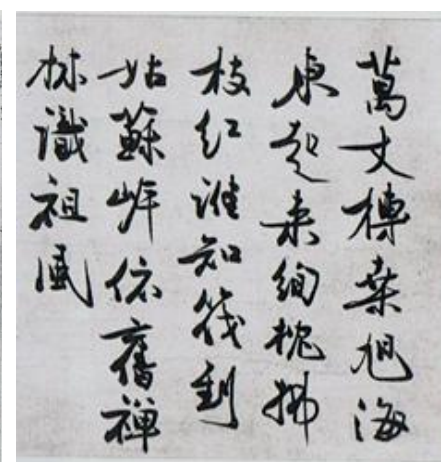 萬丈榑桑旭海
東起来絢枕拂
枝红誰知筏到
姑蘇岸依舊禅
林識祖風